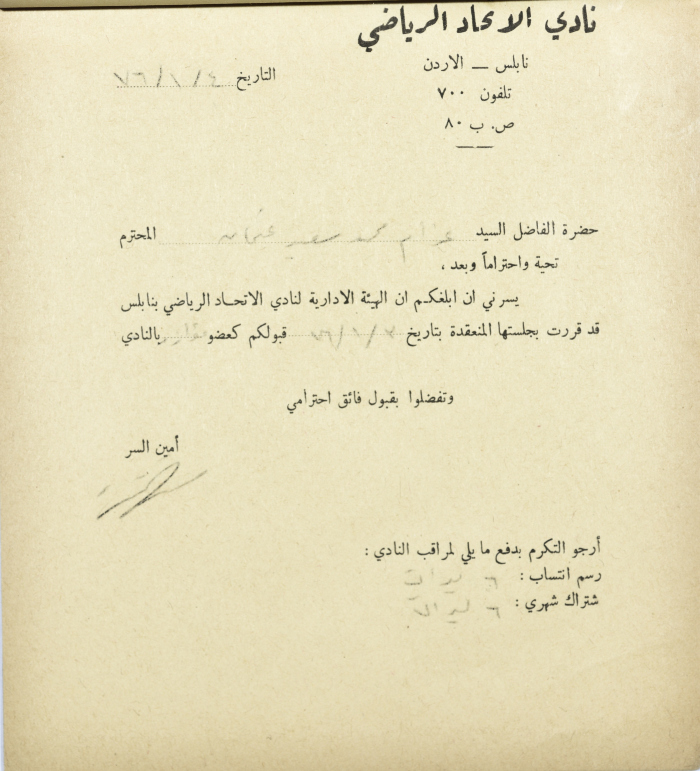 نادي الاتحاد الرياضي
نابلس — الاردن
تلفون ٧٠٠
ص. ب ٨٠
التاريخ ٤/١/٧٦
حضرة الفاضل السيد محمد سعيد عثمان المحترم
تحية واحتراماً وبعد ،
يسرني ان ابلغكم ان الهيئة الادارية لنادي الاتحاد الرياضي بنابلس
قد قررت بجلستها المنعقدة بتاريخ ٣/١/٧٦ قبولكم كعضو بالنادي
وتفضلوا بقبول فائق احترامي
أمين السر
أرجو التكرم بدفع ما يلي لمراقب النادي :
رسم انتساب :
شتراك شهري :